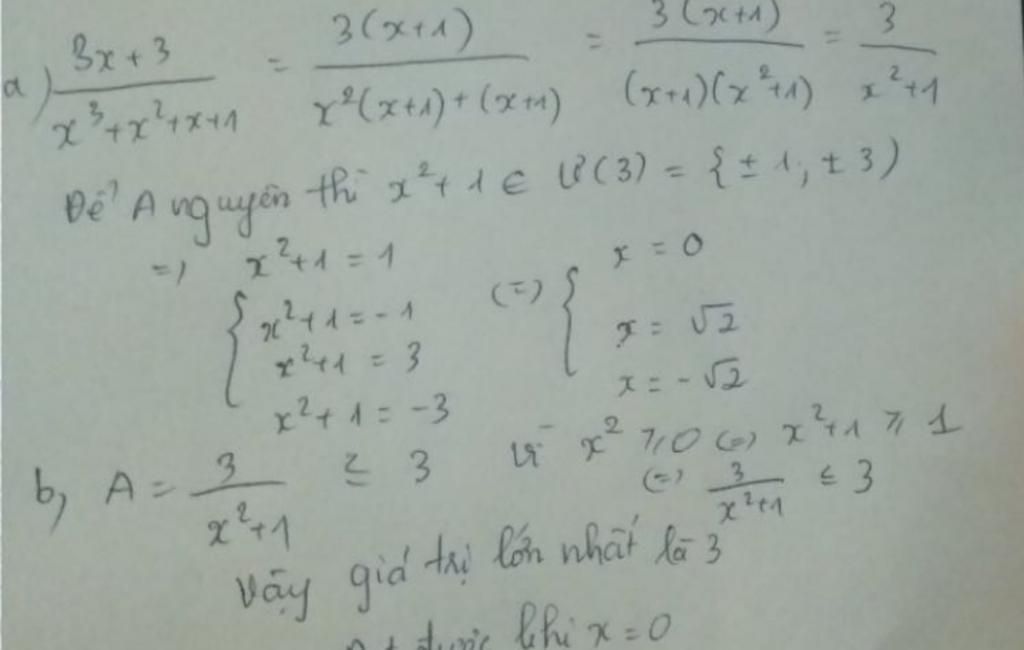 a) 3x+3 / x³+x²+x+1 = 3(x+1) / x²(x+1)+(x+1) = 3(x+1) / (x+1)(x²+1) = 3 / x²+1
Để A nguyên thì x²+1 ∈ Ư(3) = {±1; ±3)
=) x²+1 = 1 (=) { x = 0
{ x²+1 = -1
x²+1 = 3 x = √2
x²+1 = -3 x = -√2
b, A = 3 / x²+1 ≤ 3 Vì x² ≥ 0 (=) x²+1 ≥ 1
(=) 3 / x²+1 ≤ 3
Vậy giá trị lớn nhất là 3
được khi x = 0